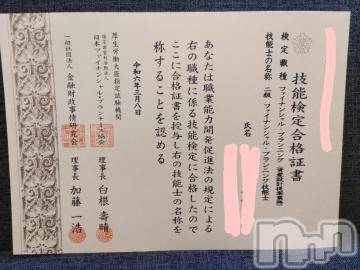 技能検定合格証書
検定職種 ファイナンシャル・プランニング(資産設計提案業務)
技能士の名称 二級 ファイナンシャル・プランニング技能士
氏名
あなたは職業能力開発促進法の規定による
右の職種に係る技能検定に合格したので
ここに合格証書を授与し右の技能士の名称を
称することを認める
令和六年三月八日
厚生労働大臣指定試験機関
日本ファイナンシャル・プランナーズ協会
理事長 白根壽晴
一般社団法人 金融財政事情研究会
理事長 加藤一浩